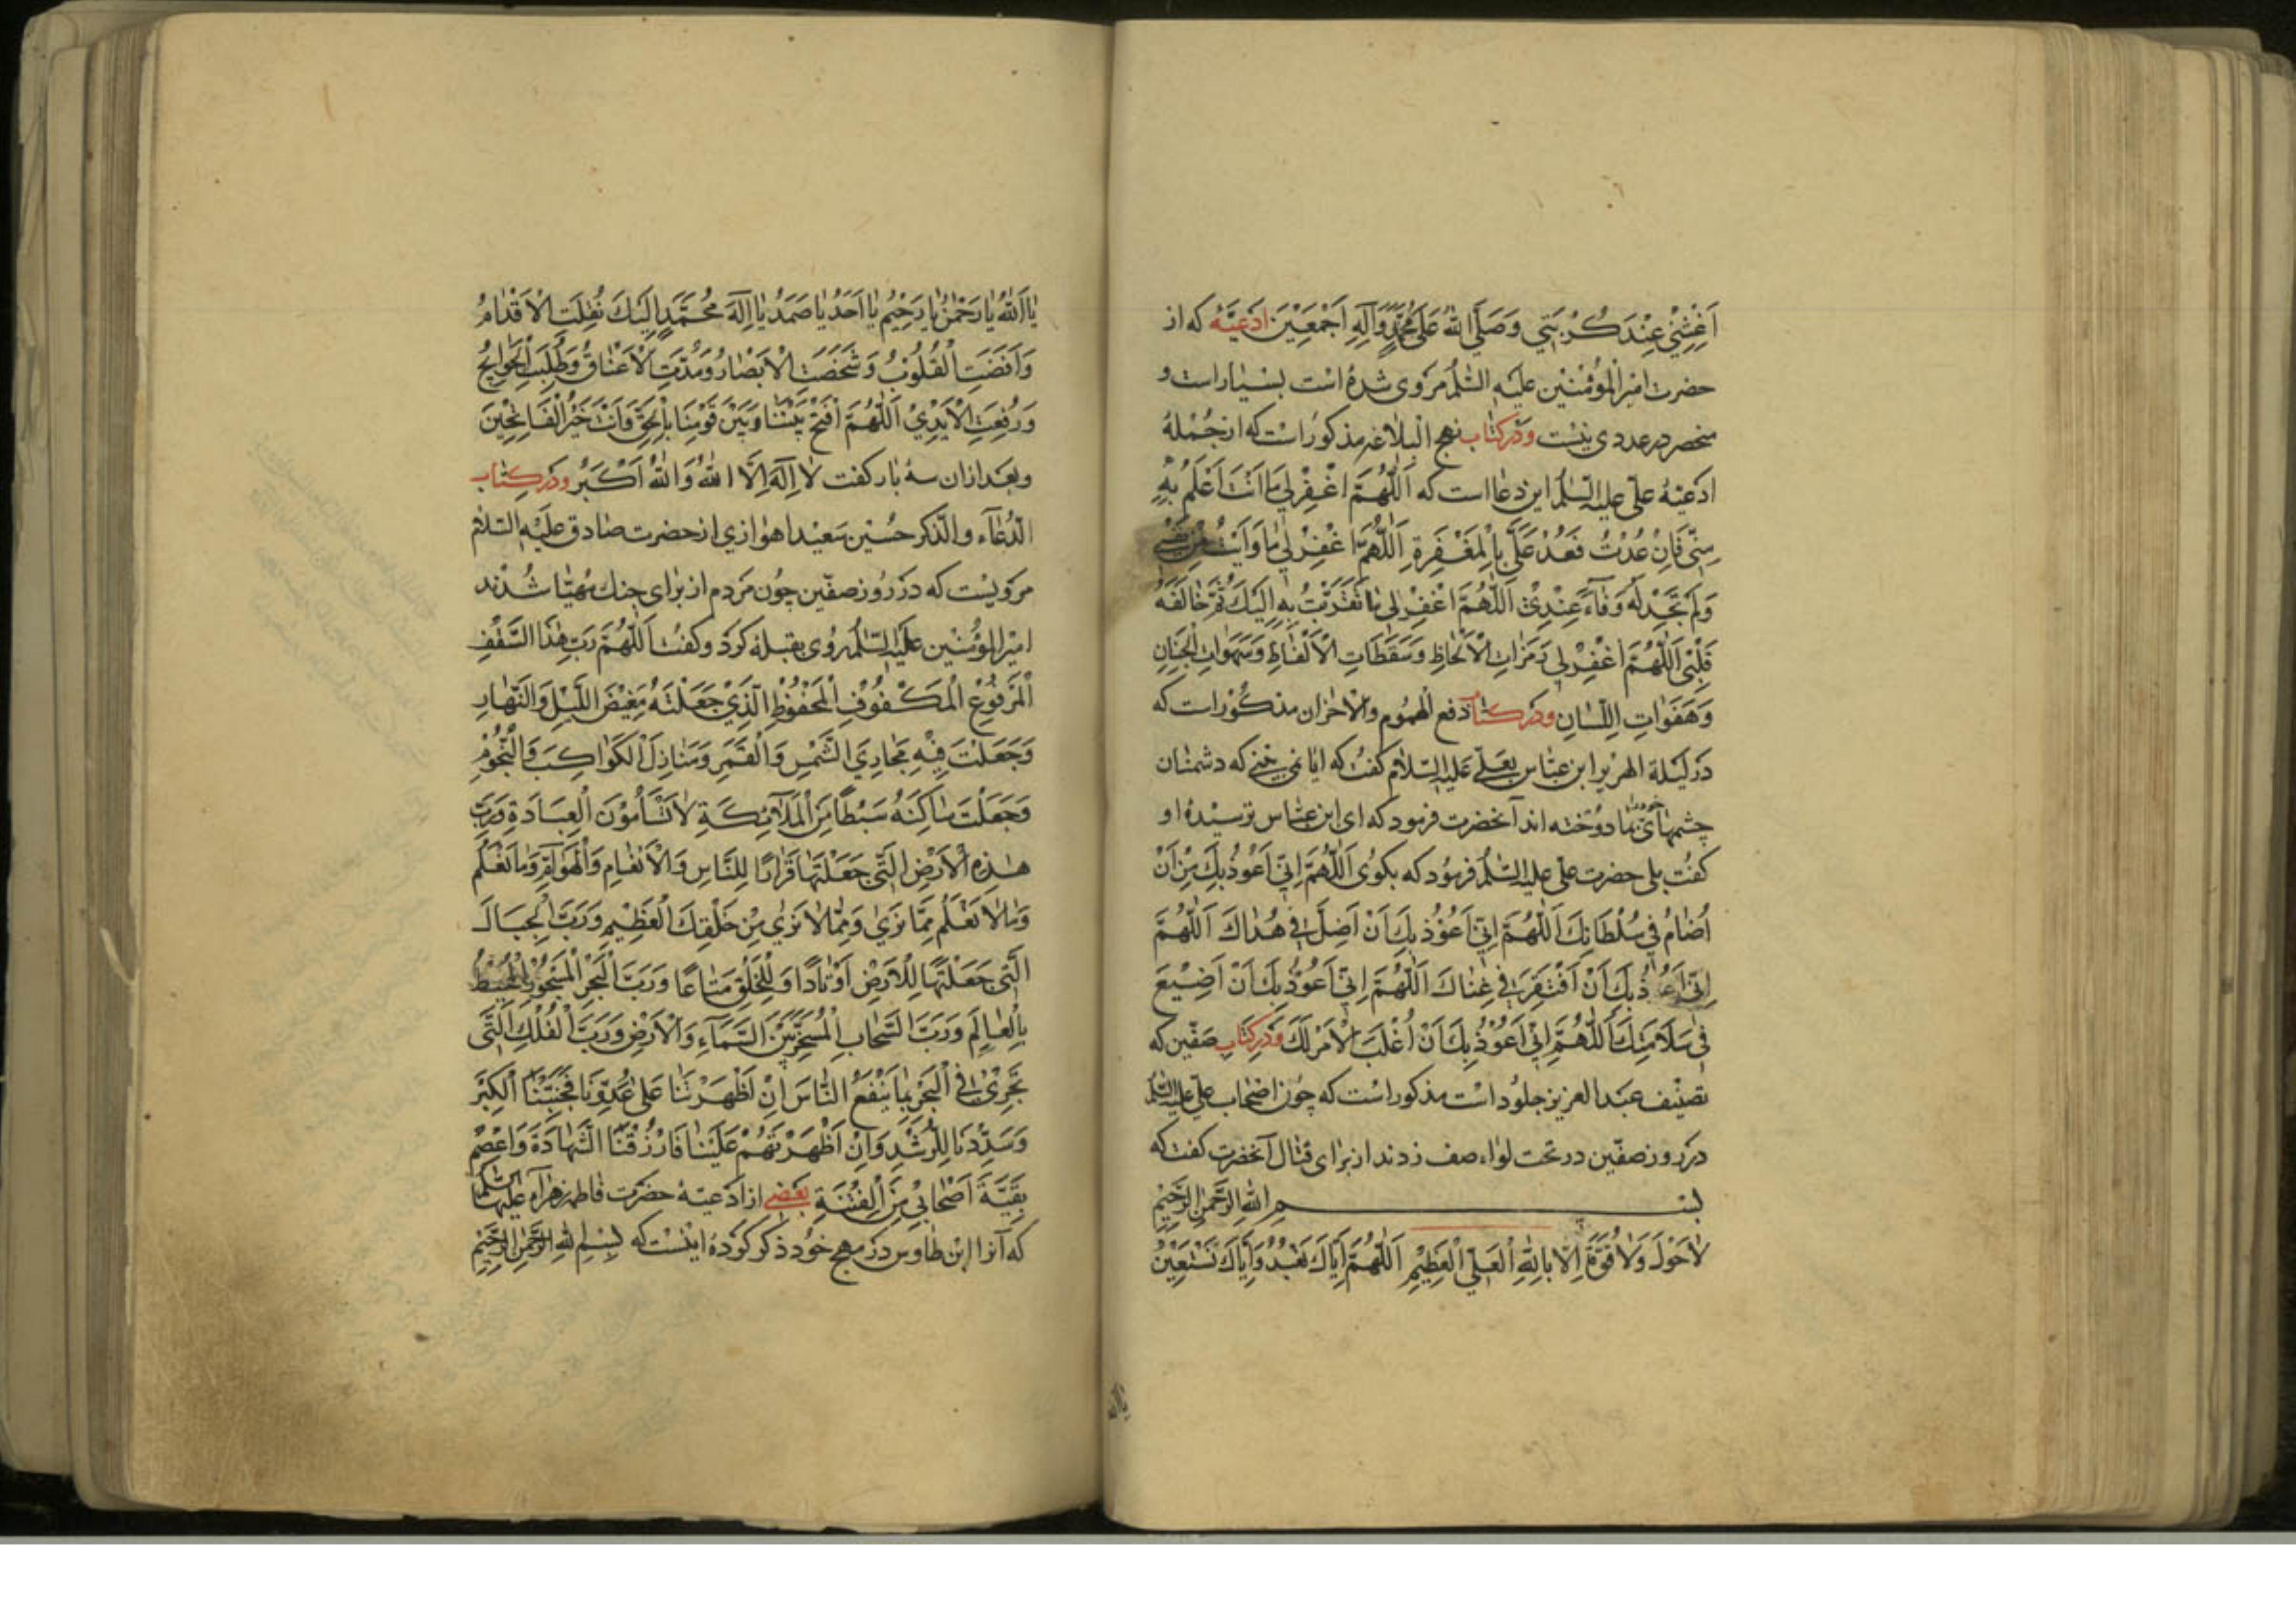 اَغِثْنِي عِنْدَ كُرْبَتِي وَصَلَّى اللهُ عَلَى مُحَمَّدٍ وَآلِهِ اَجْمَعِيْنَ ادعيهٔ که از
حضرت امیر المؤمنین علیه السلم مروی شده است بسیار است و
منحصر در عددی نیست و در کتاب نهج البلاغه مذکور است که از جملهٔ
ادعیهٔ علی علیه السلم این دعا است که اَللّٰهُمَّ اغْفِرْ لِي مَا اَنْتَ اَعْلَمُ بِهِ
مِنِّي فَاِنْ عُدْتُ فَعُدْ عَلَيَّ بِالْمَغْفِرَةِ اَللّٰهُمَّ اغْفِرْ لِي مَا وَاَيْتُ مِنْ نَفْسِي
وَلَمْ تَجِدْ لَهُ وَفَاءً عِنْدِيْ اَللّٰهُمَّ اغْفِرْ لِي مَا تَقَرَّبْتُ بِهِ اِلَيْكَ ثُمَّ خَالَفَهُ
قَلْبِي اَللّٰهُمَّ اغْفِرْ لِي رَمَزَاتِ الْاَلْحَاظِ وَسَقَطَاتِ الْاَلْفَاظِ وَسَهَوَاتِ الْجَنَانِ
وَهَفَوَاتِ اللِّسَانِ و در کتاب دفع الهموم والاحزان مذکور است که
در لیلة الهریر ابن عباس بعلی علیه السلام گفت که ایا نمی بینی که دشمنان
چشمهای خود را بما دوخته اند آنحضرت فرمود که ای ابن عباس ترسیدهٔ او
گفت بلی حضرت علی علیه السلم فرمود که بگوی اَللّٰهُمَّ اِنِّي اَعُوذُ بِكَ مِنْ اَنْ
اُضَامَ فِي سُلْطَانِكَ اَللّٰهُمَّ اِنِّي اَعُوْذُ بِكَ اَنْ اَضِلَّ فِي هُدَاكَ اَللّٰهُمَّ
اِنِّي اَعُوذُ بِكَ اَنْ اَفْتَقِرَ فِي غِنَاكَ اَللّٰهُمَّ اِنِّي اَعُوْذُ بِكَ اَنْ اَضِيْعَ
فِي سَلَامَتِكَ اَللّٰهُمَّ اِنِّي اَعُوْذُ بِكَ اَنْ اُغْلَبَ وَالْاَمْرُ لَكَ و در کتاب صفّین که
تصنیف عبد العزیز جلود است مذکور است که چون اصحاب علی علیه السلم
در روز صفّین در تحت لواء صف زدند از برای قتال آنحضرت گفت که
بسم الله الرحمن الرحیم
لَا حَوْلَ وَلَا قُوَّةَ اِلَّا بِاللّٰهِ الْعَلِيِّ الْعَظِيْمِ اَللّٰهُمَّ اِيَّاكَ نَعْبُدُ وَاِيَّاكَ نَسْتَعِيْنُ
یا الله
يَا اَللهُ يَا رَحْمٰنُ يَا رَحِيْمُ يَا اَحَدُ يَا صَمَدُ يَا اِلٰهَ مُحَمَّدٍ اِلَيْكَ نُقِلَتِ الْاَقْدَامُ
وَاَفْضَتِ الْقُلُوْبُ وَشَخَصَتِ الْاَبْصَارُ وَمُدَّتِ الْاَعْنَاقُ وَطُلِبَتِ الْحَوَائِجُ
وَرُفِعَتِ الْاَيْدِيْ اَللّٰهُمَّ افْتَحْ بَيْنَنَا وَبَيْنَ قَوْمِنَا بِالْحَقِّ وَاَنْتَ خَيْرُ الْفَاتِحِيْنَ
وبعد از ان سه بار گفت لَا اِلٰهَ اِلَّا اللهُ وَاللهُ اَكْبَرُ و در کتاب
الدُّعَاء والذکر حسین سعید اهوازی از حضرت صادق علیه السلام
مرویست که در روز صفین چون مردم از برای جنك مهیّا شدند
امیر المؤمنین علیه السلم روی بقبله کرد و گفت اَللّٰهُمَّ رَبَّ هٰذَا السَّقْفِ
الْمَرْفُوْعِ الْمَكْفُوْفِ الْمَحْفُوْظِ الَّذِيْ جَعَلْتَهُ مَغِيْضَ اللَّيْلِ وَالنَّهَارِ
وَجَعَلْتَ فِيْهِ مَجَارِيَ الشَّمْسِ وَالْقَمَرِ وَمَنَازِلَ الْكَوَاكِبَ وَالنُّجُوْمِ
وَجَعَلْتَ سَاكِنَهُ سَبْطًا مِنَ الْمَلَائِكَةِ لَا يَسْأَمُوْنَ الْعِبَادَةِ وَرَبَّ
هٰذِهِ الْاَرْضِ الَّتِي جَعَلْتَهَا قَرَارًا لِلنَّاسِ وَالْاَنْعَامِ وَالْهَوَامِّ وَمَا نَعْلَمُ
وَمَا لَا نَعْلَمُ مِمَّا نَرَى وَمِمَّا لَا نَرَى مِنْ خَلْقِكَ الْعَظِيْمِ وَرَبَّ الْجِبَالِ
الَّتِي جَعَلْتَهَا لِلْاَرْضِ اَوْتَادًا وَلِلْخَلْقِ مَتَاعًا وَرَبَّ الْبَحْرِ الْمَسْجُوْرِ الْمُحِيْطِ
بِالْعَالَمِ وَرَبَّ السَّحَابِ الْمُسَخَّرِ بَيْنَ السَّمَاءِ وَالْاَرْضِ وَرَبَّ الْفُلْكِ الَّتِي
تَجْرِيْ فِي الْبَحْرِ بِمَا يَنْفَعُ النَّاسَ اِنْ اَظْهَرْتَنَا عَلَى عَدُوِّنَا فَجَنِّبْنَا الْكِبْرَ
وَسَدِّدْنَا لِلرُّشْدِ وَاِنْ اَظْهَرْتَهُمْ عَلَيْنَا فَارْزُقْنَا الشَّهَادَةَ وَاعْصِمْ
بَقِيَّةَ اَصْحَابِيْ مِنَ الْفِتْنَةِ بعضی از ادعیهٔ حضرت فاطمه زهراء علیها السلم
که آنرا ابن طاوس در مهج خود ذکر کوده اینست که بسم الله الرحمن الرحیم